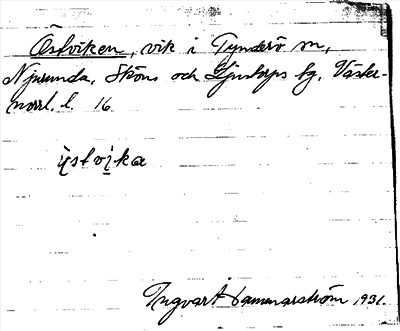 Östviken, vik i Tynderö sn,
Njurunda, Sköns och Ljustorps tg, Väster-
norrl. l. 16
ỵstvi̊ka
Ingvart Hammarström 1931.